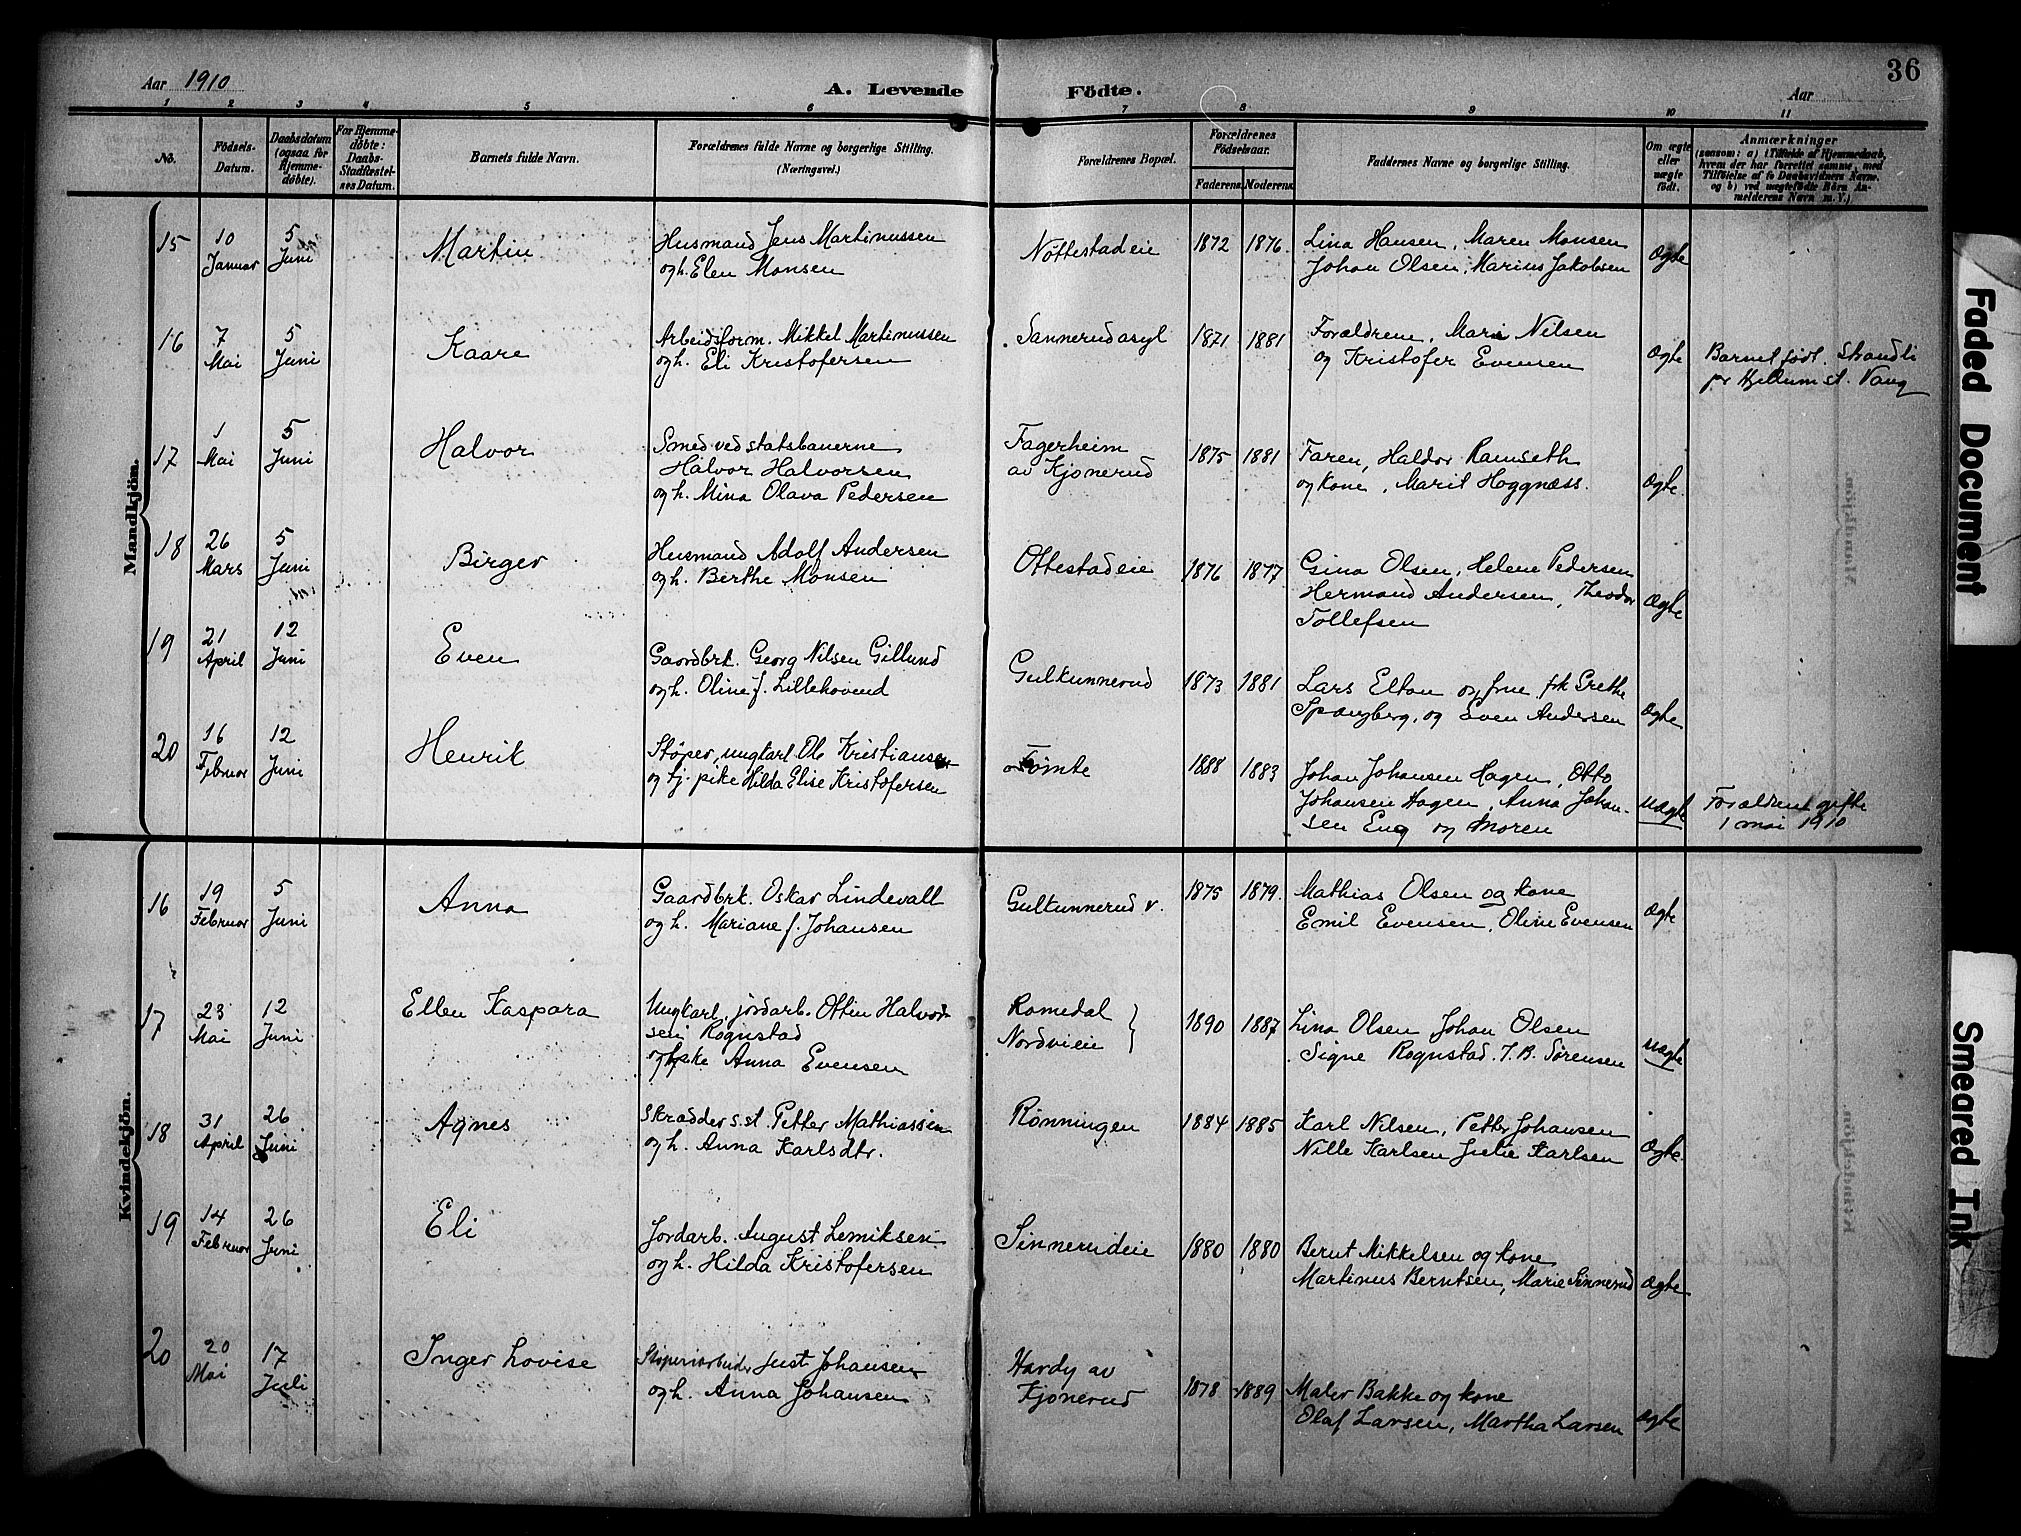 36
Aar 1910
A. Levende Födte.
Aar
1 2 3 4 5 6 7 8 9 10 11
No.
Födsels-Datum.
Daabsdatum (ogsaa for Hjemmedöbte).
For Hjemmedöbte: Daabs-Stadfæstelses Datum.
Barnets fulde Navn.
Forældrenes fulde Navne og borgerlige Stilling.
(Næringsvei.)
Forældrenes Bopæl.
Forældrenes Födselsaar.
Faderens. Moderens.
Faddernes Navne og borgerlige Stilling.
Om ægte eller uægte födt.
Anmærkninger
(saasom: a) i Tilfælde af Hjemmedaab, hvem der har forrettet samme, med Tilföielse af to Daabsvidners Navne, og b) ved uægtefödte Börn Anmelderens Navn m. V.)
Mandkjön.
15
10 Januar
5 Juni
Martin
Husmand Jens Martinussen
og h. Elen Monsen
Nøttestadeie
1872 1876.
Lina Hansen, Maren Monsen
Johan Olsen, Marius Jakobsen
Ægte
16
7 Mai
5 Juni
Kaare
Arbeidsform. Mikkel Martinussen
og h. Eli Kristofersen
Sannerudasyl
1871 1881
Forældrene, Mari Nilsen
og Kristofer Evensen
Ægte
Barnet født. Strandli
pr Hjellum st. Vang
17
1 Mai
5 Juni
Halvor
Smed ved statsbanerne
Halvor Halvorsen
og h. Mina Olava Pedersen
Fagerheim
av Kjonerud
1875 1881
Faren, Haldor Ramseth
og kone, Marit Hoggnæss.
Ægte.
18
26 Mars
5 Juni
Birger
Husmand Adolf Andersen
og h. Berthe Monsen
Ottestadeie
1876 1877
Gina Olsen, Helene Pedersen
Hermand Andersen, Theodor
Tollefsen
Ægte
19
21 April
12 Juni
Even
Gaardbrk. Georg Nilsen Gillund
og h. Oline f. Lillehovend
Gulkunnerud
1873 1881
Lars Elton og frue, frk Grethe
Spangberg, og Even Andersen
Ægte
20
16 Februar
12 Juni
Henrik
Støper, ungkarl Ole Kristiansen
og tj. pike Hilda Elise Kristofersen
Tomte
1888 1883
Johan Johansen Hagen, Otto
Johansen Hagen, Anna Johan-
sen Eng og Moren
uægte
Forældrene gifte
1 mai 1910
Kvindekjön.
16
19 Februar
5 Juni
Anna
Gaardbrk. Oskar Lindevall
og h. Mariane f. Johansen
Gulkunnerud v.
1875 1879.
Mathias Olsen og kone
Emil Evensen, Oline Evensen
Ægte
17
23 Mai
12 Juni
Ellen Kaspara
Ungkarl, jordarb. Ottin Halvor-
sen Rognstad
og pike Anna Evensen
Romedal
Nordvieie
1890 1887
Lina Olsen Johan Olsen
Signe Rognstad, J. B. Sørensen
uægte
18
31 April
26 Juni
Agnes
Skrædders.st. Petter Mathiassen
og h. Anna Karlsdtr.
Rønningen
1884 1885
Karl Nilsen, Petter Johansen
Nille Karlsen Julie Karlsen
Ægte.
19
14 Februar
26 Juni
Eli
Jordarb. August Lemiksen
og h. Hilda Kristofersen
Sinnerudeie
1880 1880
Bernt Mikkelsen og kone
Martinus Berntsen, Marie Sinnerud
Ægte
20
20 Mai
17 Juli
Inger Lovise
Støperiarbeider Just Johansen
og h. Anna Johansen
Hardy av
Kjonerud
1878 1889
Maler Bakke og kone
Olaf Larsen, Martha Larsen
Ægte
Faded Document
Smeared Ink